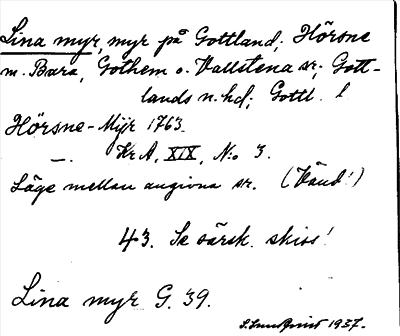 Lina myr, myr på Gottland; Hörsne
m. Bara, Gothem o. Vallstena sr; Gott-
lands n. hd; Gottl. l
Hörsne-Myr 1763.
—. Kr A, XIX, N:o 3.
Läge mellan angivna sr. (Vänd!)
43. Se särsk. skiss!
Lina myr G. 39.
1937.